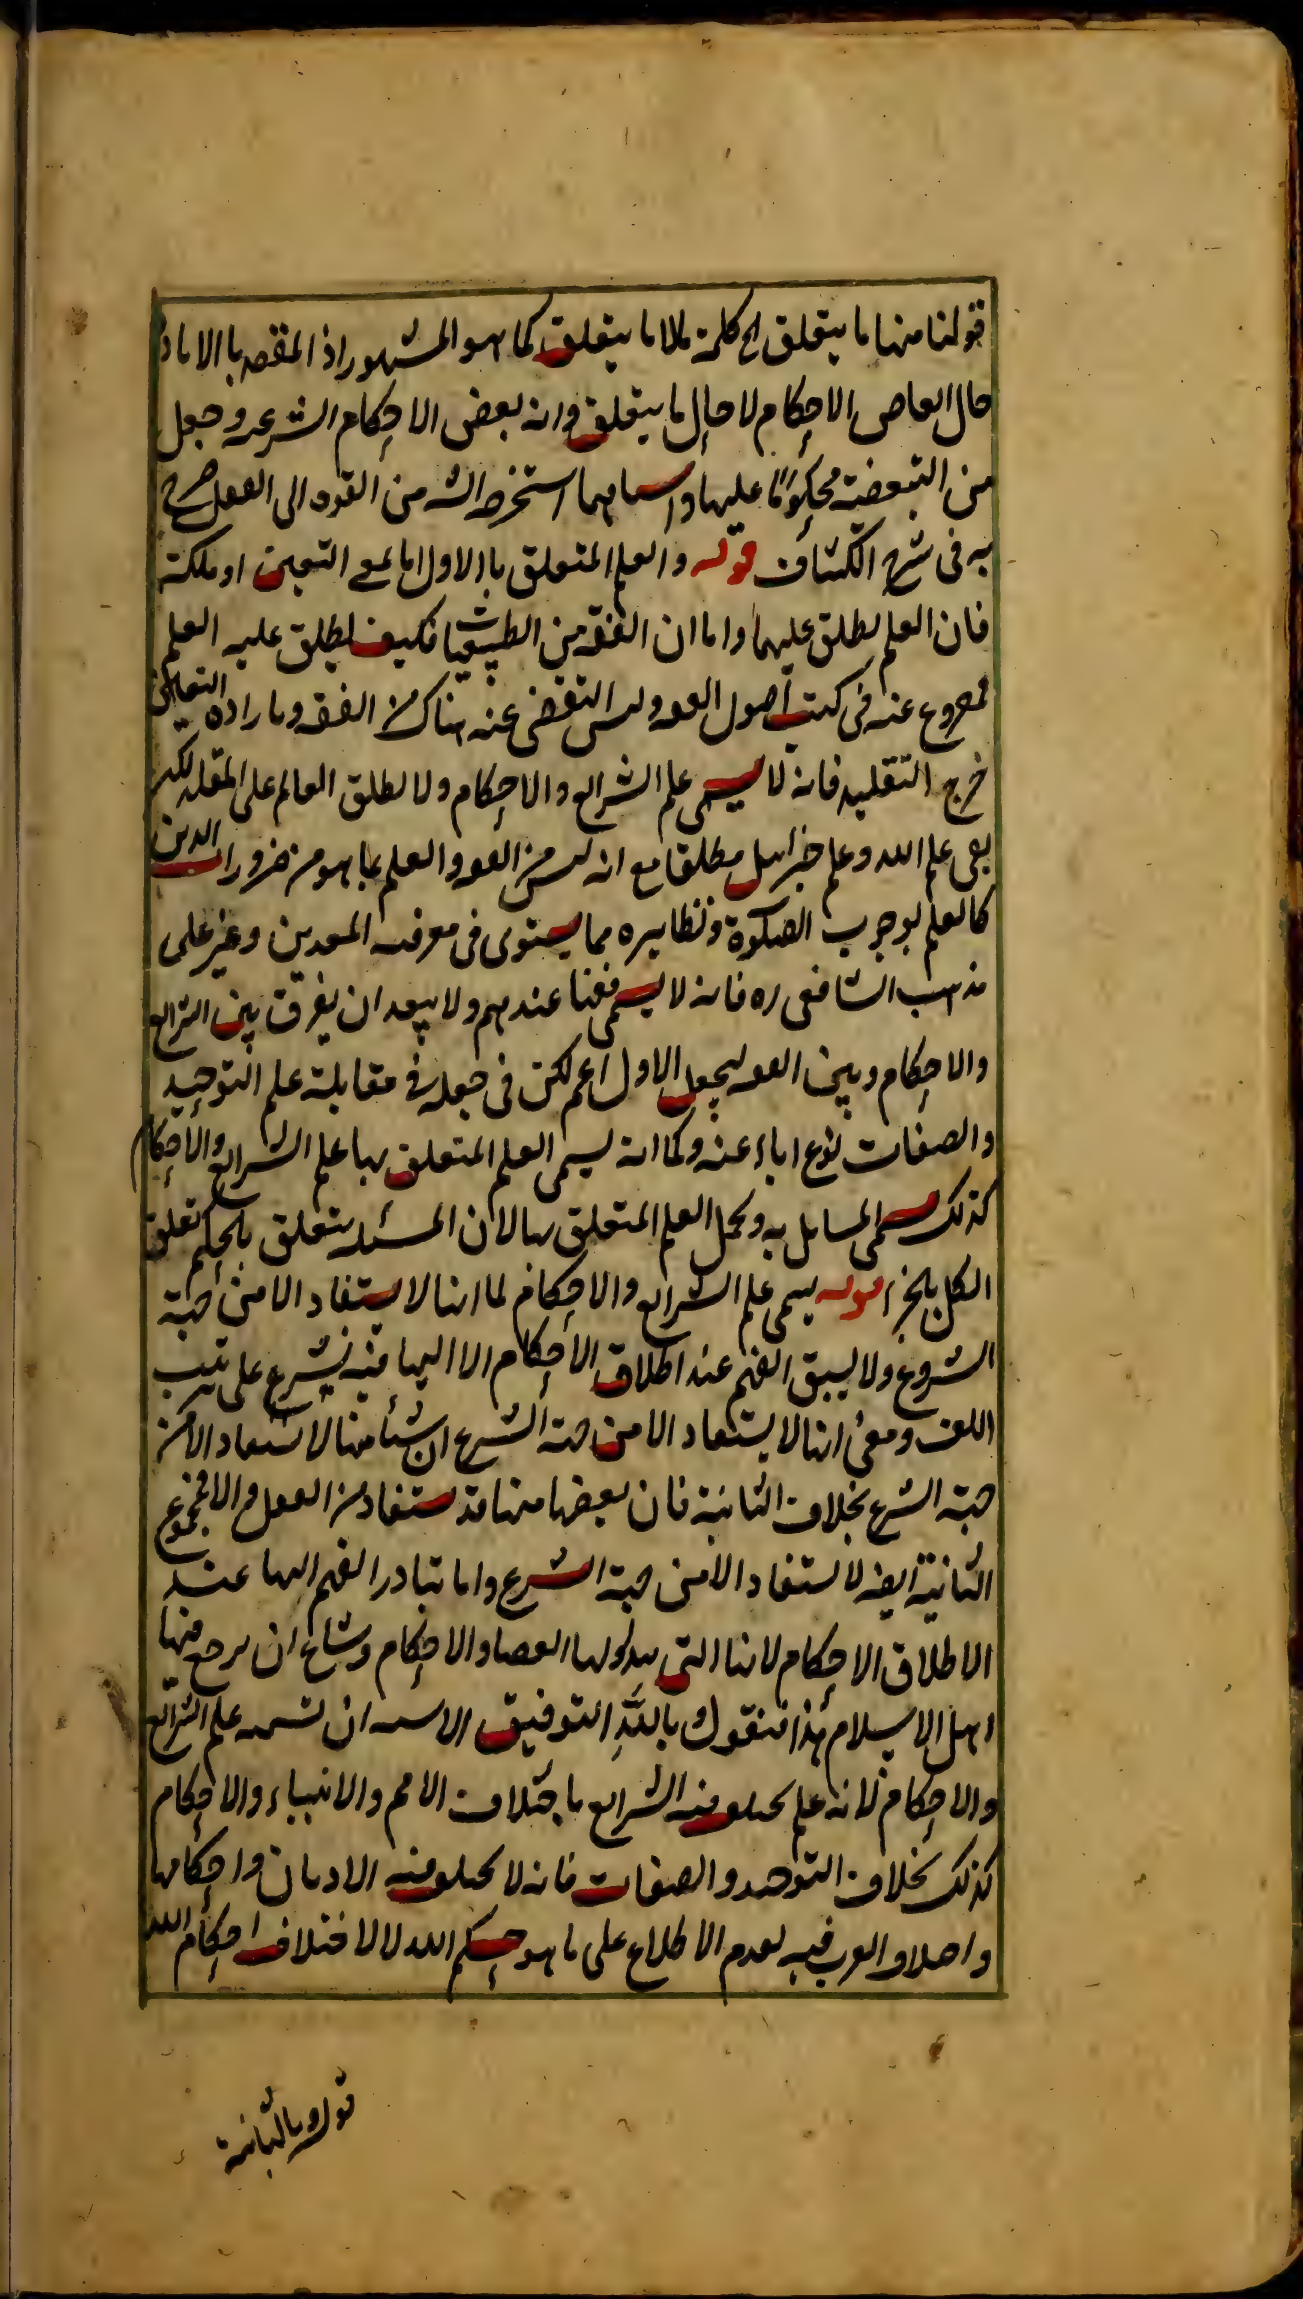 قولنا منها ما يتعلق الخ كلمة ما لا ما يتعلق كما هو المشهور اذ المقصد بالافاد
حال الابعاض الاحكام لا حال ما يتعلق وانه بعض الاحكام الشرعيه وجعل
من التبعضية محكوما عليها استخرجه الش من القوه الى الفعل صرح
به في شرح الكشاف قوله والعلم المتعلق بالاولى اما بمعنى اليقين او ملكة
فان العلم يطلق عليهما واما ان الفقه من الظنيات فكيف يطلق عليه العلم
فمفروغ عنه في كتب اصول الفقه وليس التفصى عنه هناك من الفقه وما
خرج التقليد فانه لا يسمى علم الشرايع والاحكام ولا يطلق العالم على المقلد لكن
بقى علم الله وعلم جبرائيل مطلقا مع انه ليس من الفقه والعلم بما هو من ضرورات الدين
كالعلم بوجوب الصلوة ونظايره مما يستوى في معرفته المتدين وغيره على
مذهب الشافعى ره فانه لا يسمى فقها عندهم ولا يبعد ان يفرق بين الشرايع
والاحكام وبين الفقه بجعل الاول اعم لكن في جعله في مقابلة علم التوحيد
والصفات نوع اباء عنه وكما انه يسمى العلم المتعلق بها علم الشرايع والاحكام
كذلك يسمى المسايل به ويحمل العلم المتعلق بها لان المسئله يتعلق بالحكم تعلق
الكل بالجزء قوله يسمى علم الشرايع والاحكام لما انها لا يستفاد الا من جهة
الشروع ولا يسبق الفهم عند اطلاق الاحكام الا اليها فيه نشر على ترتيب
اللف ومعنى انها لا يستفاد الا من جهة الشرع ان شيئا منها لا يستفاد الا من
جهة الشرع بخلاف الثانية فان بعضها منها قد يستفاد من العقل والا فمجموع
الثانية ايضا لا يستفاد الا من جهة الشرع واما تبادر الفهم اليها عند
الاطلاق الاحكام لانها التي والاحكام وشاع ان يرجع فيها
اهل الاسلام هذا فنقول وبالله التوفيق الاشبه ان تسميته علم الشرايع
والاحكام لانه علم يختلف فيه الشرايع باختلاف الامم والانبياء والاحكام
كذلك بخلاف التوحيد والصفات فانه لا يختلف فيه الاديان واحكامها
واختلاف الفرق فيه لعدم الاطلاع على ما هو حكم الله لا لاختلاف احكام الله
قوله وبالثانية